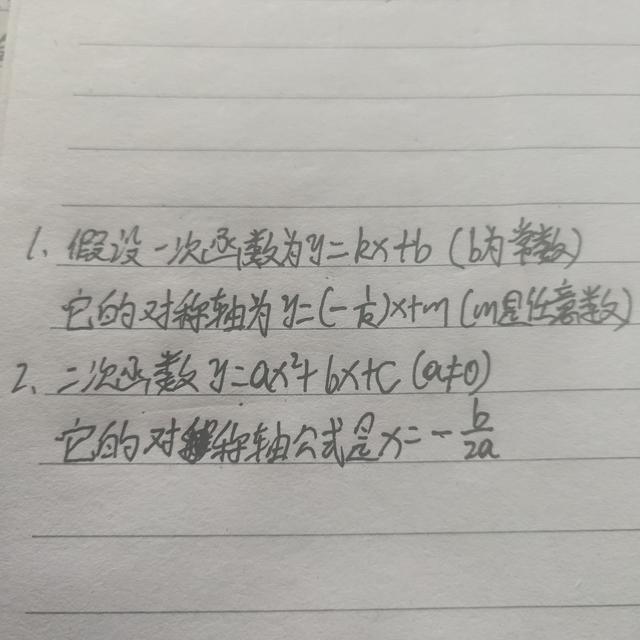 1、假设一次函数为y=kx+b（b为常数）
它的对称轴为y=(-1/k)x+m（m是任意数）
2、二次函数y=ax²+bx+c（a≠0）
它的对称轴公式是x=-b/2a